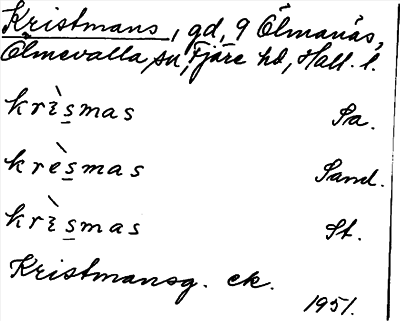 Kristmans, gd, 9 Ölmanäs,
Ölmevalla sn, Fjäre hd, Hall. l.
krɩ̀s̲mas Sa.
krès̲mas Sand.
krɩ̀s̲mas St.
Kristmansg. ek.
1951.